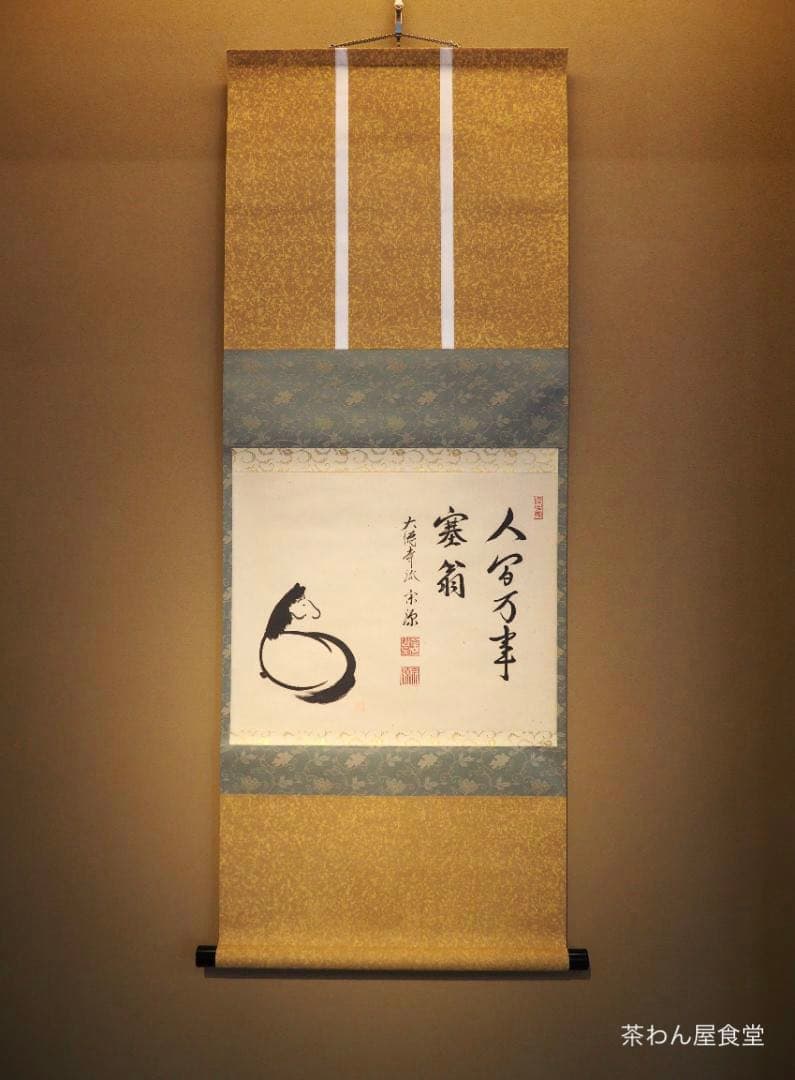 人間万事
塞翁
大徳寺派 宗源
茶わん屋食堂